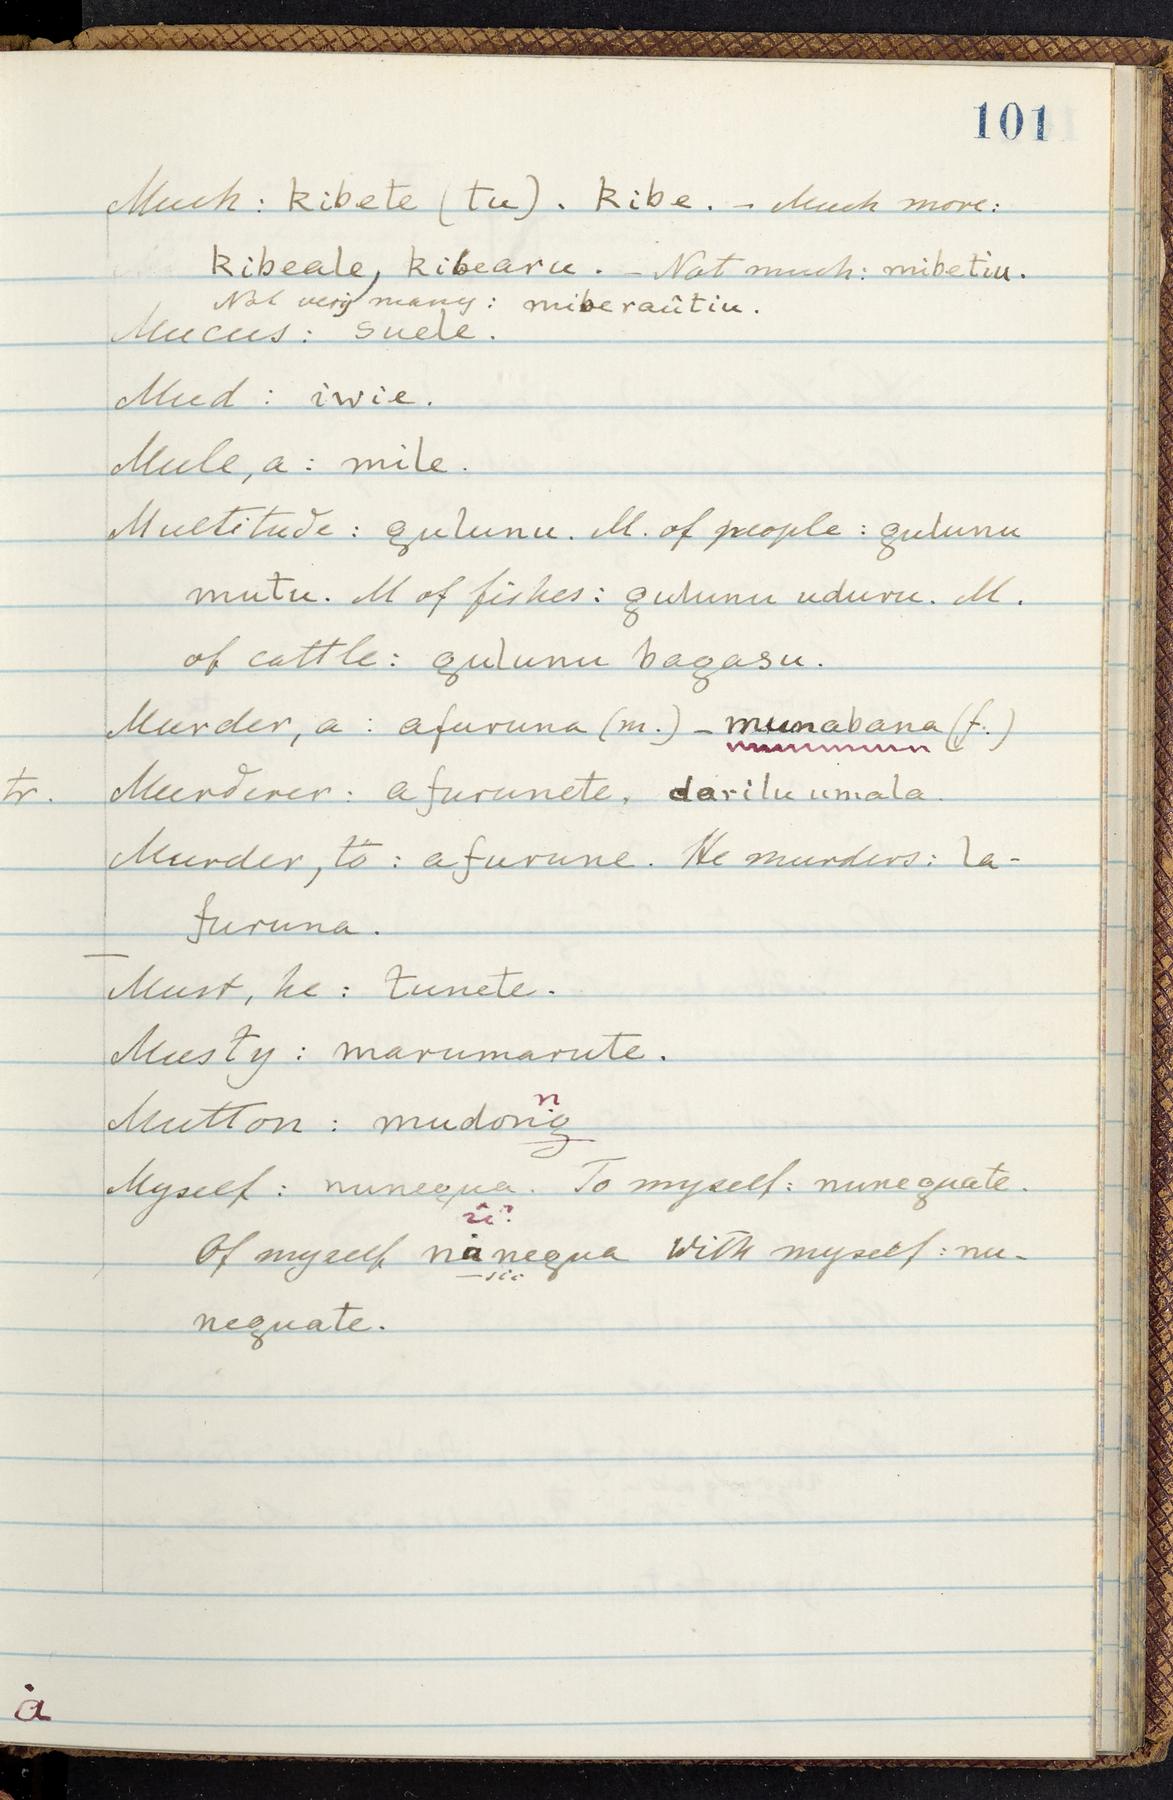 101
Much : kibete (tu). kibe. – Much more:
kibeale, kibearu. – Not much: mibetiu.
Not very many: miberaûtiu.
Mucus: suele.
Mud : iwie.
Mule, a : mile.
Multitude : gulunu. M. of people : gulunu
mutu. M of fishes: gulunu uduru. M.
of cattle: gulunu bagasu.
Murder, a : afuruna (m.) – munabana (f.)
tr. Murderer: afurunete, darilu umala.
Murder, to : afurune. He murders: la-
furuna.
Must, he : tunete.
Musty : marumarute.
n
Mutton : mudonig
Myself : nunegua. To myself: nuneguate.
û?
Of myself nȧnegua With myself: nu-
sic
neguate.
ȧ